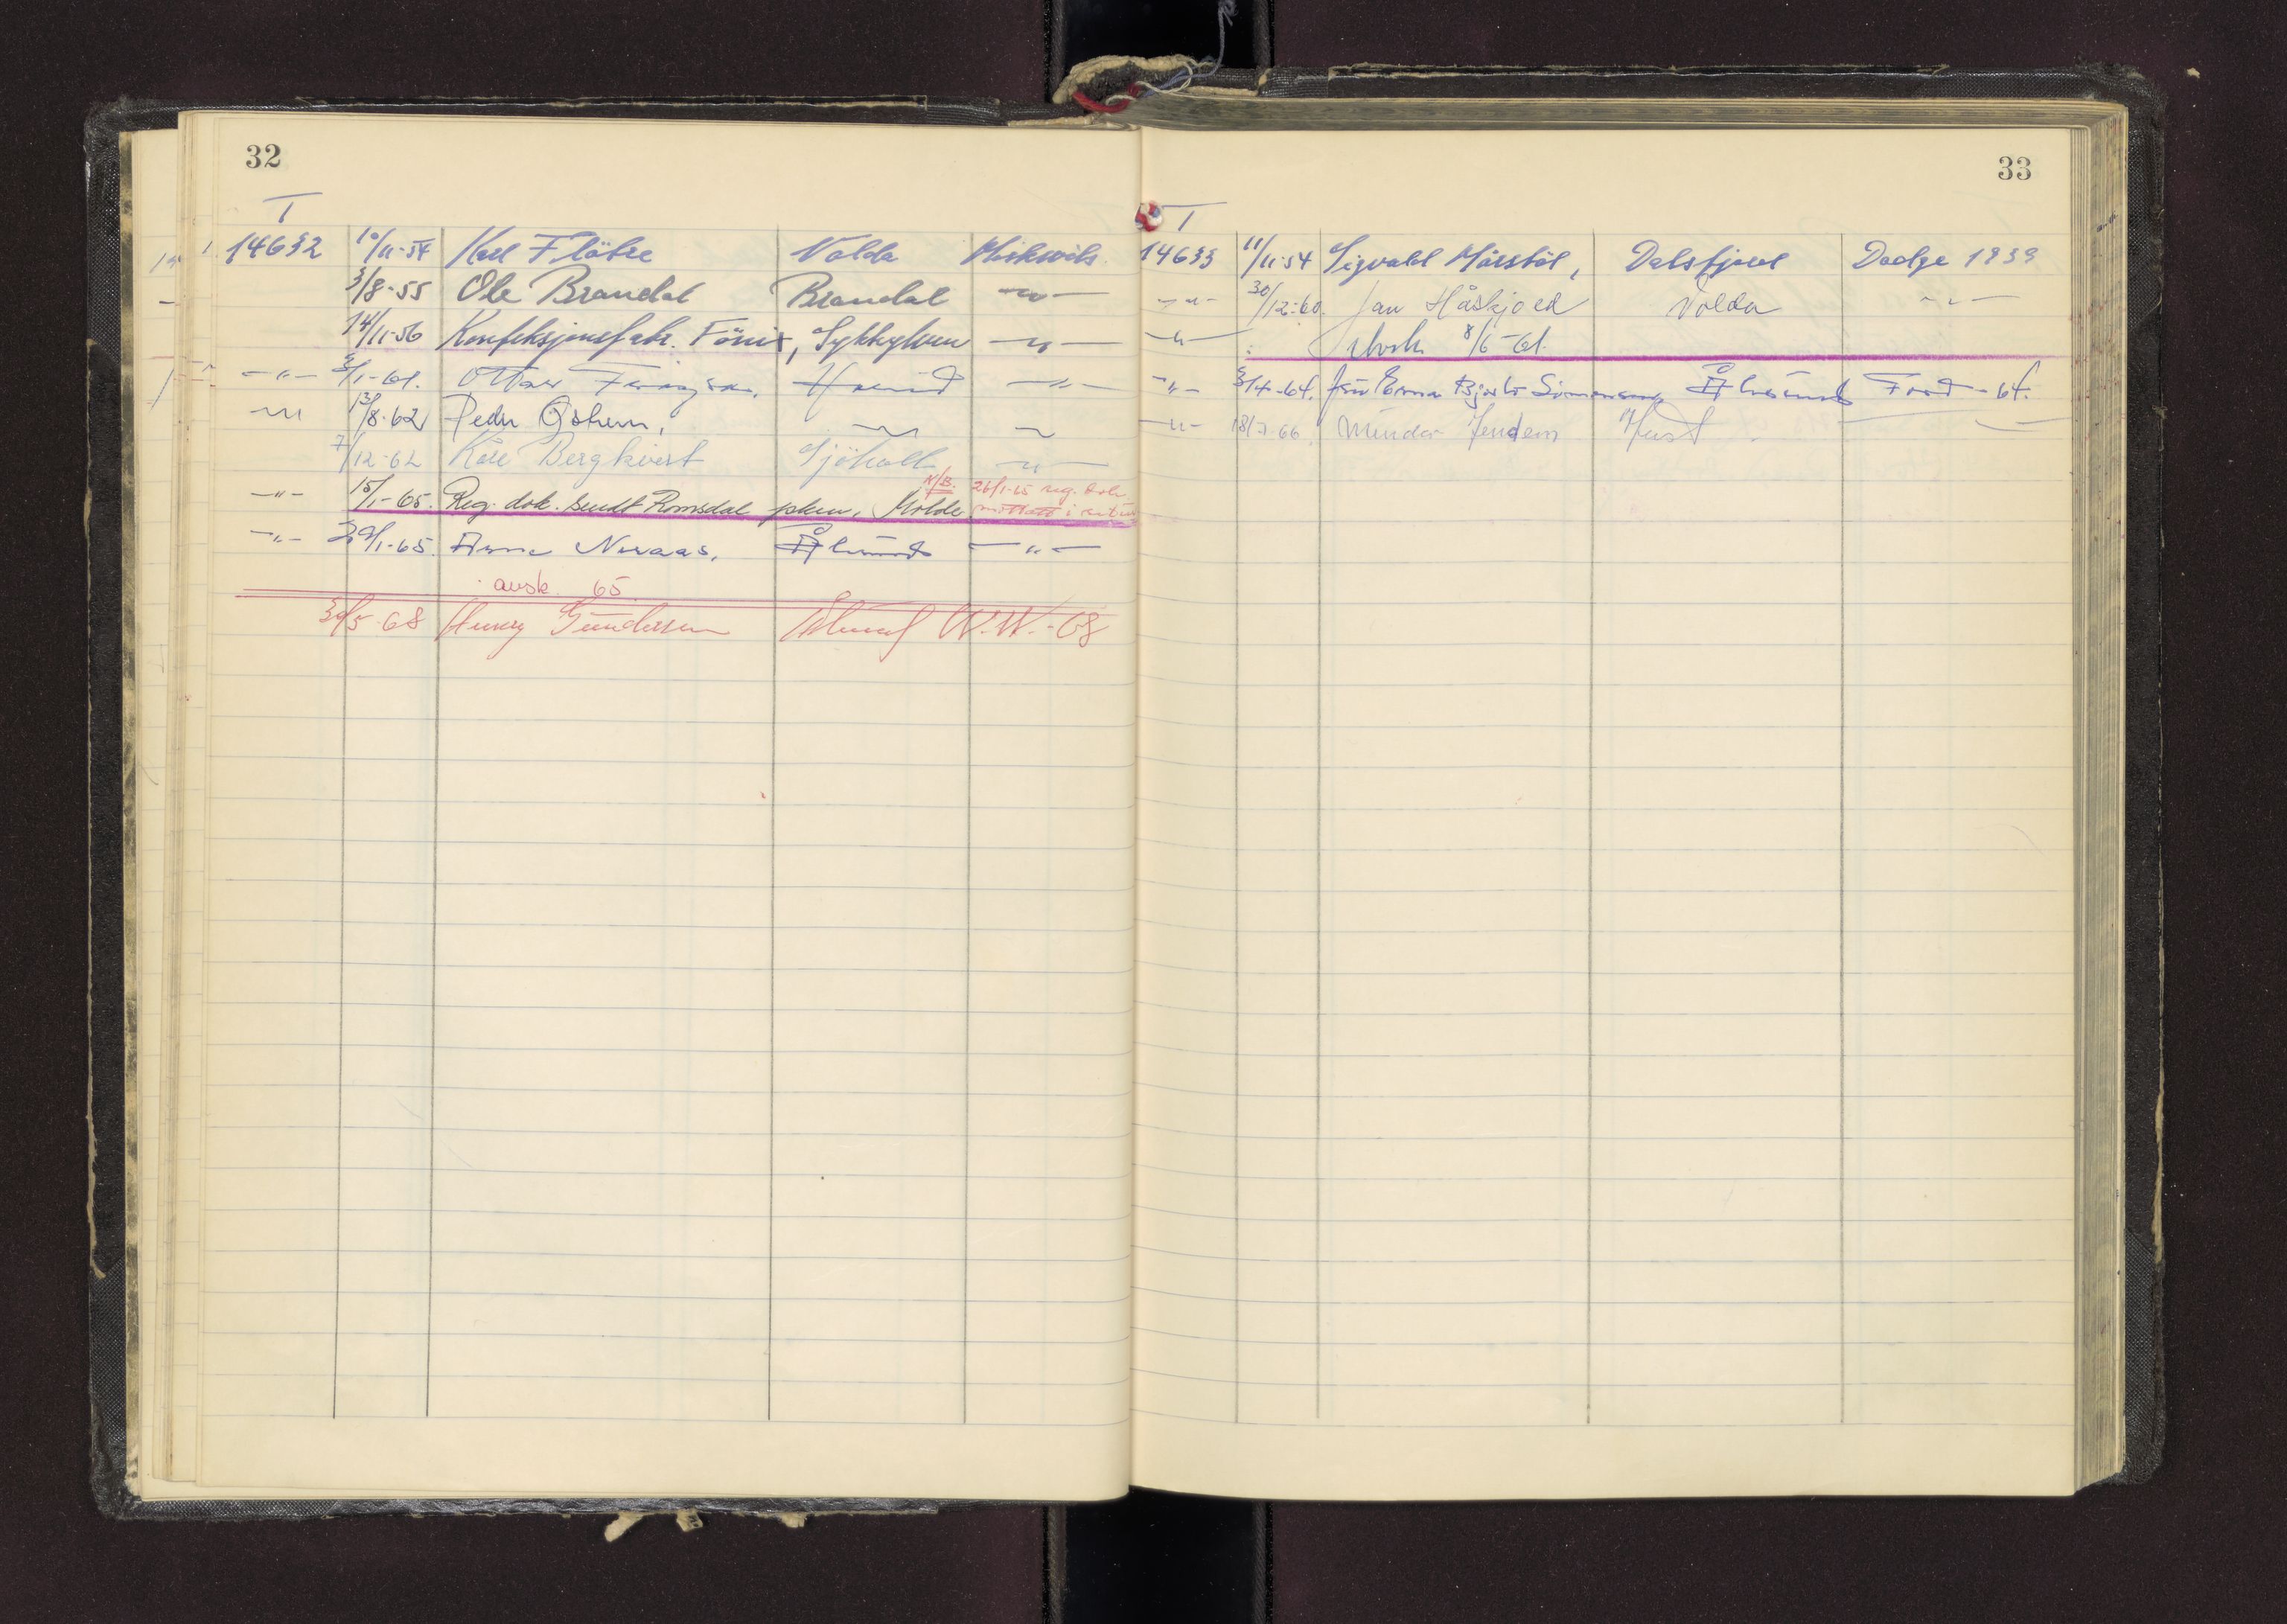 32
T
14632 10/11-54 Karl Flåtre Volda Moskwits
3/8-55 Ole Brandal Brandal -"-
14/11-56 Konfeksjonsfabr. Fönix, Sykkylven -"-
-"- 3/1-61. Ottar -"-
-"- 13/8-62 Peder -"- -"-
7/12-62 Kåre Bergkvist Sjöholt -"-
-"- 15/1-65. Reg. dok. sendt Romsdal pkm, Molde N/B. 26/1-65 reg. dok.
mottatt i retur
-"- 29/1-65. Arne Ålesund -"-
avsk. 65
30/5-68 Henry Gundersen Ålesund W.W.-68
33
T
14633 11/11-54 Sigvald Dalsfjord Dodge 1939
-"- 30/12-60. Jan Håskjold Volda -"-
-"- Avsk. 8/6-61.
-"- 3/4-64. fru Erna Simonsen, Ålesund Ford -64.
-"- 18/7 66 Mindor Jendem